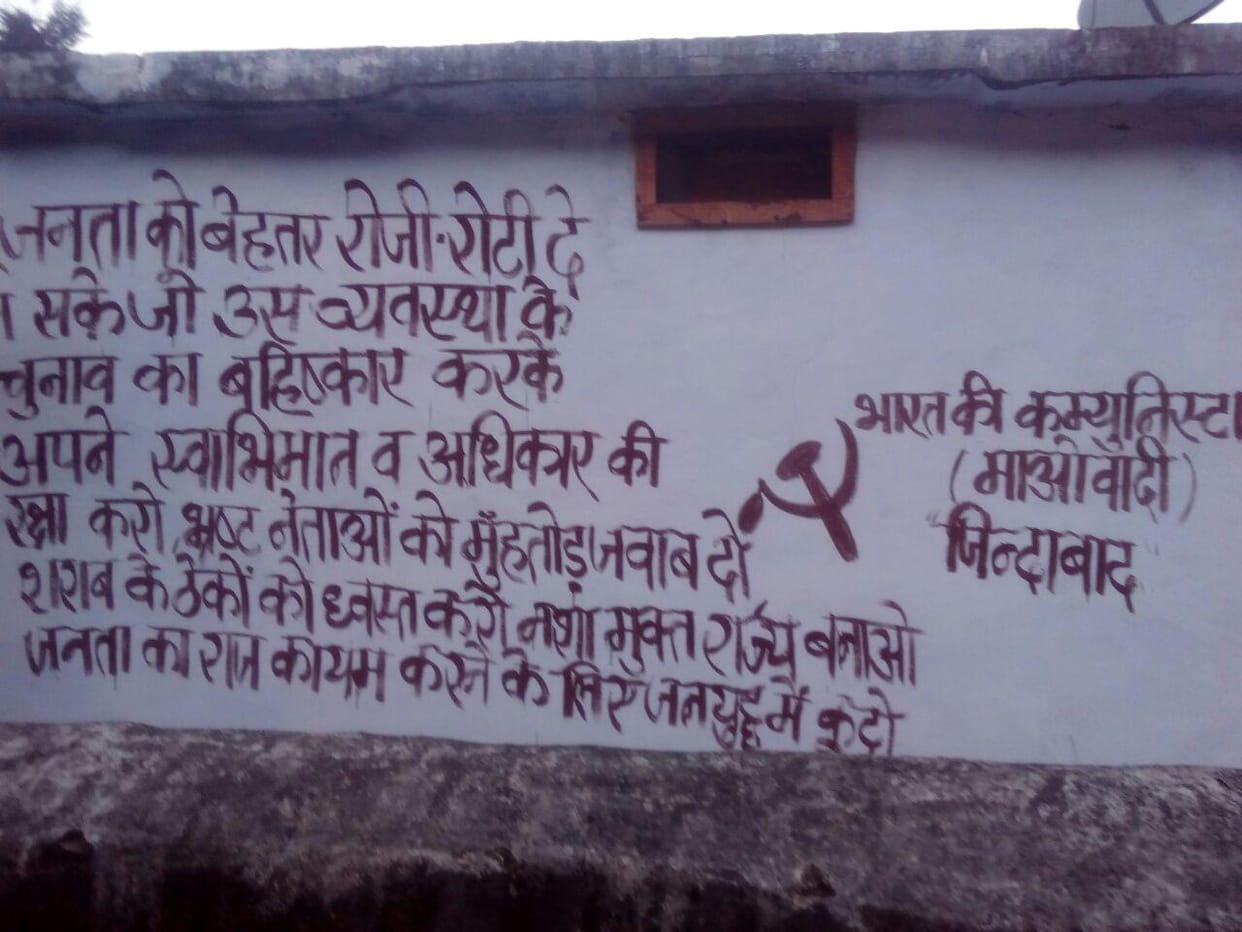 जनता को बेहतर रोजी-रोटी दे
सके जो उस व्यवस्था के
चुनाव का बहिष्कार करके
अपने स्वाभिमान व अधिकार की
रक्षा करो, भ्रष्ट नेताओं को मुँहतोड़ जवाब दो
शराब के ठेकों को ध्वस्त करो नशा मुक्त राज्य बनाओ
जनता का राज कायम करने के लिए जनयुद्ध में कूदो
भारत की कम्युनिस्ट
(माओवादी)
"जिन्दाबाद"